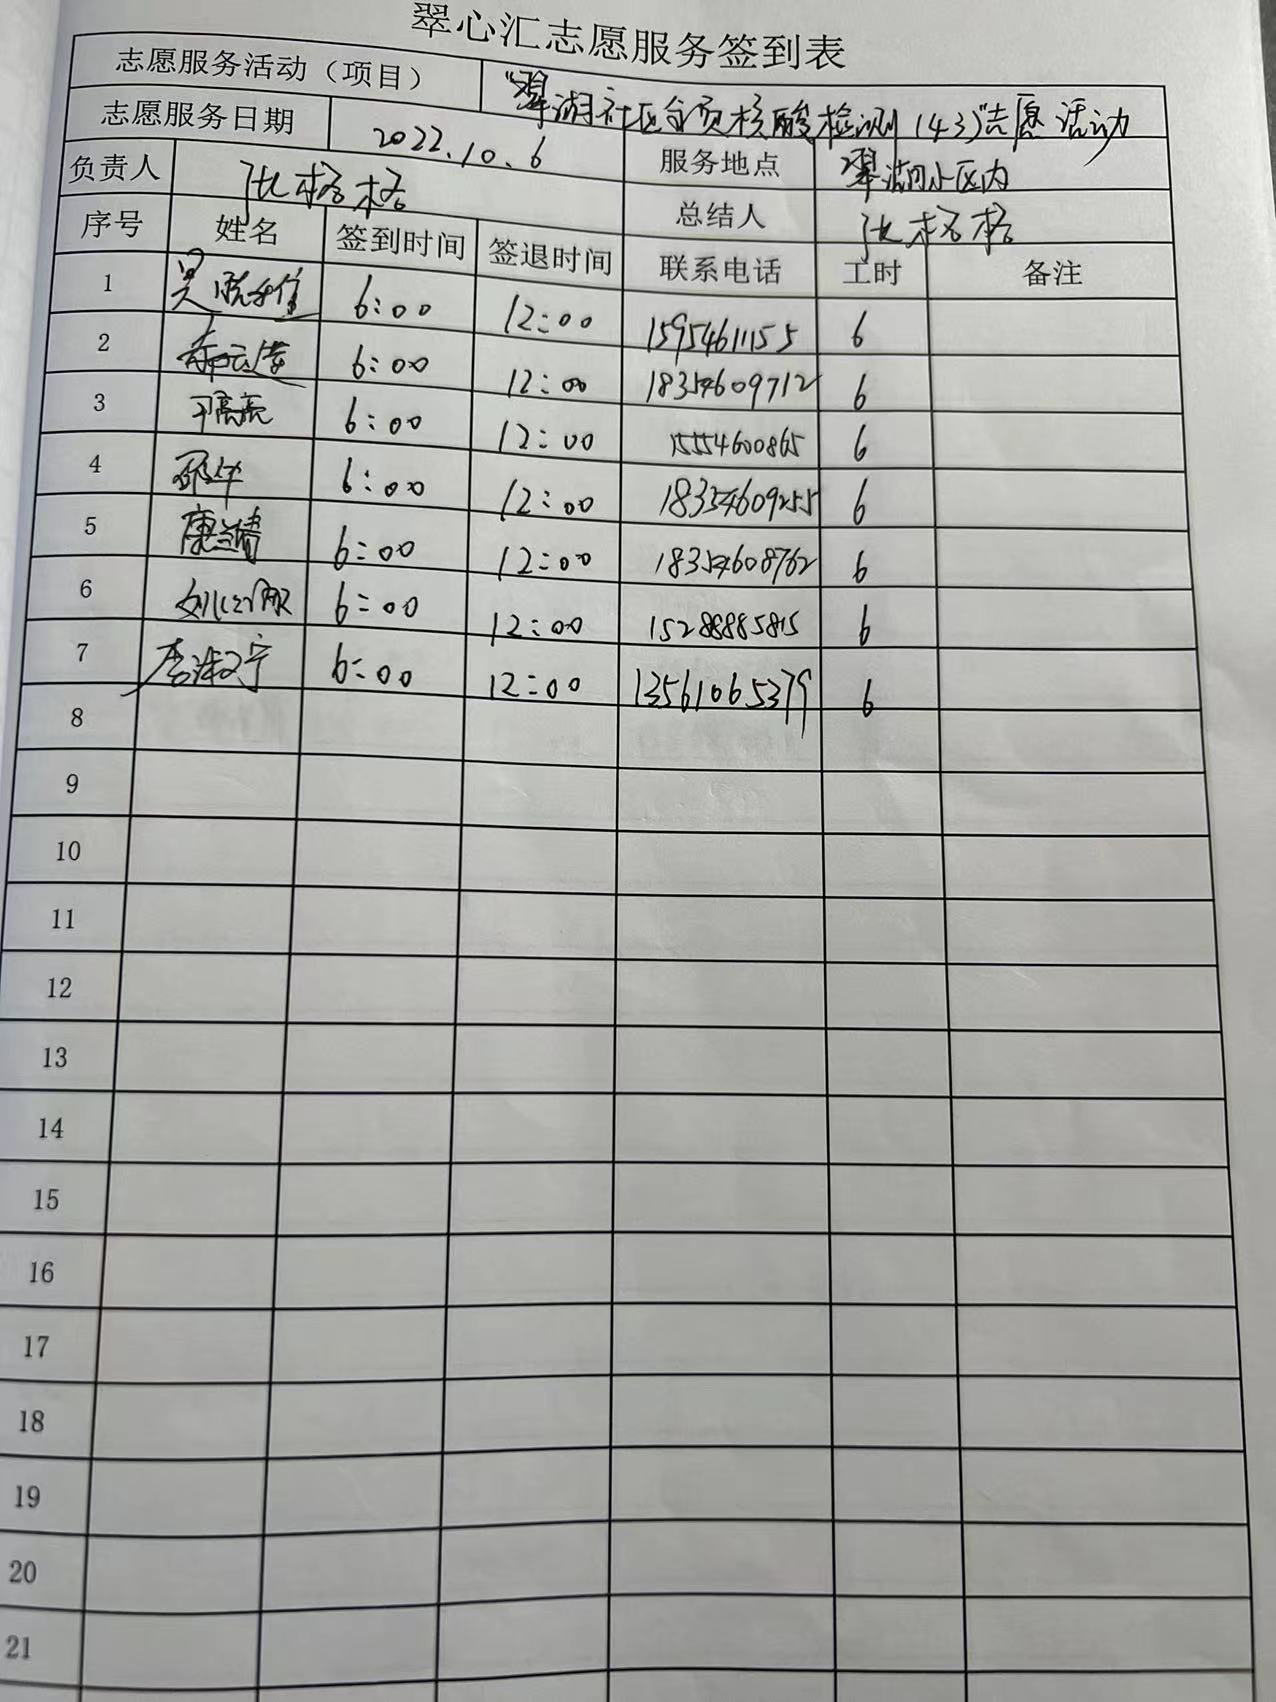 翠心汇志愿服务签到表
志愿服务活动（项目） "翠湖社区全员核酸检测（43）"志愿活动
志愿服务日期 2022.10.6 服务地点 翠湖小区内
负责人 张格格 总结人 张格格
序号 姓名 签到时间 签退时间 联系电话 工时 备注
1 6:00 12:00 15954611155 6
2 6:00 12:00 18354609712 6
3 6:00 12:00 15554600865 6
4 邵华 6:00 12:00 18354609255 6
5 康兰靖 6:00 12:00 18354608762 6
6 6:00 12:00 15288885815 6
7 李淑宁 6:00 12:00 13561065379 6
8
9
10
11
12
13
14
15
16
17
18
19
20
21